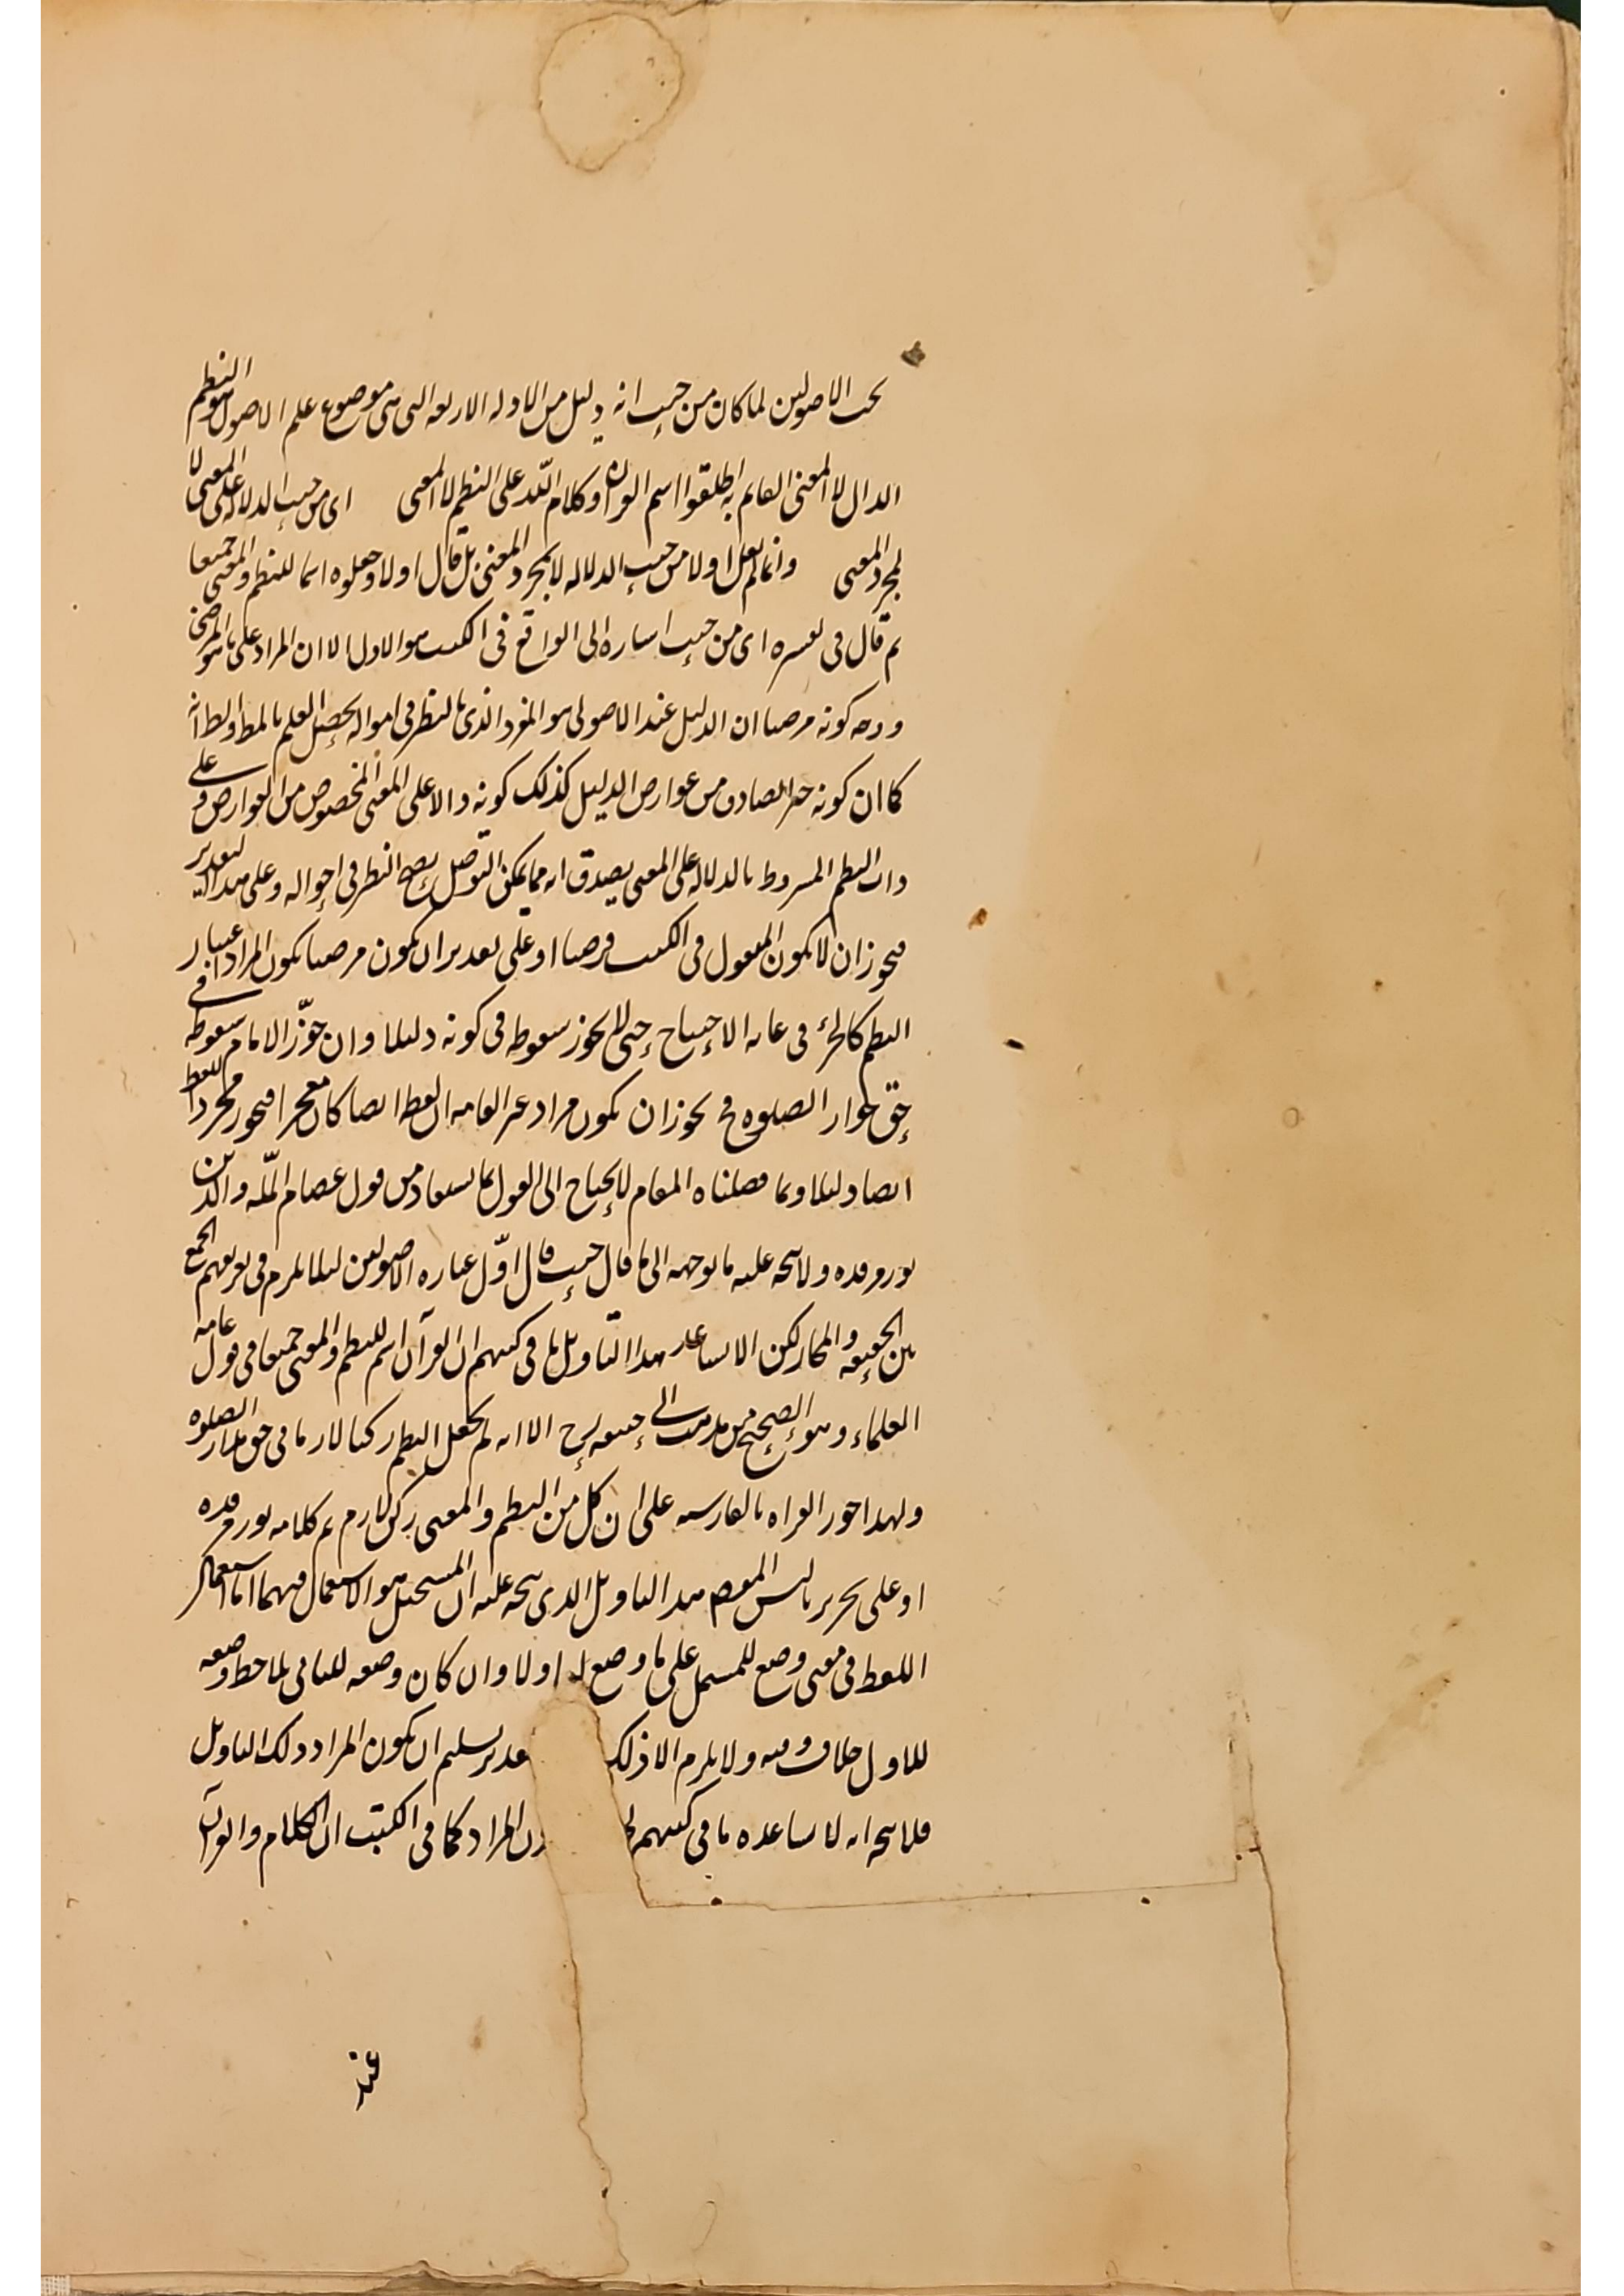 بحث الاصولين لما كان من حيث انه دليل من الادله الاربعه التى هى موضوع علم الاصول هو النظم
الدال لا المعنى القايم به اطلقوا اسم القران وكلام اللّه على النظم لا المعنى اى من حيث الدلاله على المعنى لا
لمجرد المعنى وانما لم يقل اولا من حيث الدلاله لا لمجرد المعنى بل قال اولا وجعلوه اسما للنظم والمعنى جميعا
ثم قال فى تفسيره اى من حيث اشاره الى الواقع فى الكتب هو الاول الا ان المراد على ما هو المرضى
ووجه كونه مرضيا ان الدليل عند الاصولى هو المفرد الذى بالنظر فى احواله يحصل العلم بالمط والظ انه
كما ان كونه خبر الصادق من عوارض الدليل كذلك كونه دالا على المعنى المخصوص من العوارض وعلى
ذات النظم المشروط بالدلاله على المعنى يصدق انه مما يمكن التوصل بصحيح النظر فى احواله وعلى هذا التقدير
فيجوز ان لا يكون المنقول فى الكتب مرضيا او على تقدير ان يكون مرضيا يكون المراد اعتبار
النظم كالجزء فى غايه الاحتياج حتى لا يجوز سقوطه فى كونه دليلا وان جوّز الامام سقوطه فى
حق جواز الصلوه ويجوز ان يكون مراد غير العامه ان اللفظ ايضا كان معجزا فيجوز مجرد اللفظ
ايضا دليلا وبما فصلناه المقام لا يحتاج الى القول بما يستفاد من قول عصام الملّه والدين
نور مرقده ولا يتجه عليه ما توجه الى ما قال حيث قال اوّل عباره الاصوليين ليلا يلزم فى تعريفهم الجمع
بين الحقيقه والمجاز لكن لا يساعد هذا التاويل ما فى كتبهم ان القرآن اسم للنظم والمعنى جميعا فى قول عامه
العلماء وهو الصحيح من مذهب ابى حنيفه رح الا انه لم يجعل النظم ركنا لازما فى حق جواز الصلوه
ولهذا جوز القراه بالفارسيه على ان كل من النظم والمعنى ركن لازم تم كلامه نور مرقده
او على تحرير ما ليس المقص هذا التاويل الذى يتجه عليه ان المستحيل هو الاستعمال فيهما اما استعمال
اللفظ فى معنى وضع للمشتمل على ما وضع له اولا وان كان وضعه للثانى بملاحظه وضعه
للاول خلاف فيه ولا يلزم الا ذلك تقدير تسليم ان يكون المراد ذلك التاويل
فلا يتجه انه لا يساعده ما فى كتبهم المراد كما فى الكتب ان الكلام والقرآن
عند